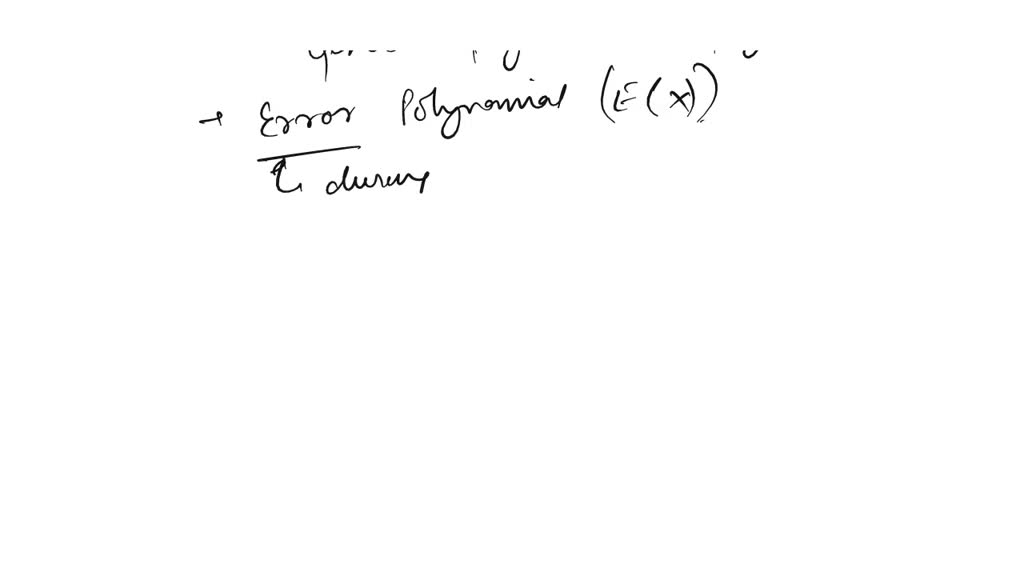 → Error Polynomial (E(x))
↳ during